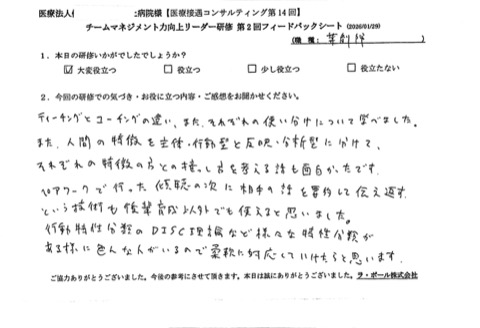 医療法人 病院様【医療接遇コンサルティング第14回】
チームマネジメント力向上リーダー研修 第2回フィードバックシート (2026/01/29)
(職種: 薬剤師 )
1．本日の研修いかがでしたでしょうか？
☑大変役立つ □役立つ □少し役立つ □役立たない
2．今回の研修での気づき・お役に立つ内容・ご感想をお聞かせください。
ティーチングとコーチングの違い、また、それぞれの使い分けについて学べました。
また、人間の特徴を主体・行動型と反映・分析型に分けて、
それぞれの特徴の方との接し方を考える話も面白かったです。
ペアワークで行った傾聴の次に相手の話を要約して伝え返す
という技術も後輩育成以外でも使えると思いました。
行動特性分類のDISC理論など様々な特性分類が
ある様に色んな人がいるので柔軟に対応していけたらと思います。
ご協力ありがとうございました。今後の参考にさせて頂きます。本日は誠にありがとうございました。ラ・ポール株式会社